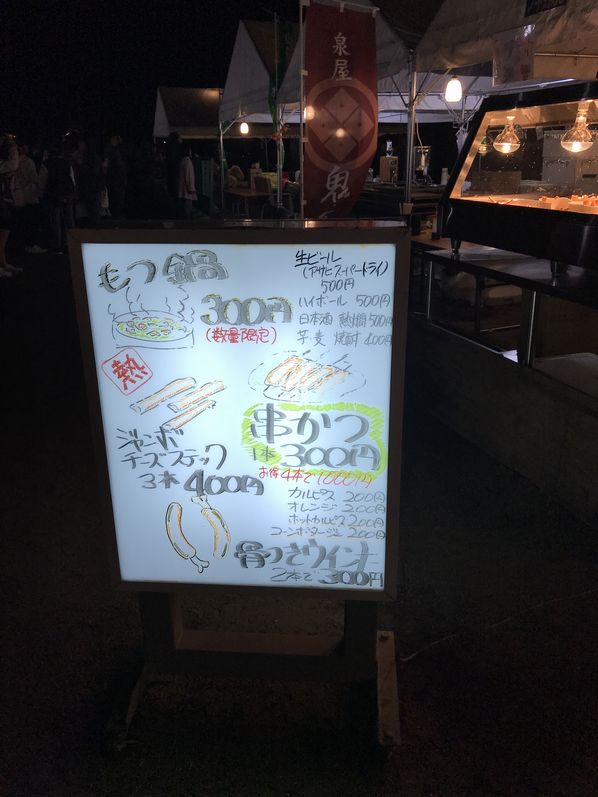 泉屋
鬼
もつ鍋
300円
(数量限定)
熱
生ビール
(アサヒスーパードライ)
500円
ハイボール 500円
日本酒 熱燗500円
芋・麦 焼酎 400円
ジャンボ
チーズスティック
3本 400円
串かつ
1本 300円
お得 4本で1000円
カルピス 200円
オレンジ 200円
ホットカルピス 200円
コーンポタージュ 200円
骨つきウィンナー
2本で 300円